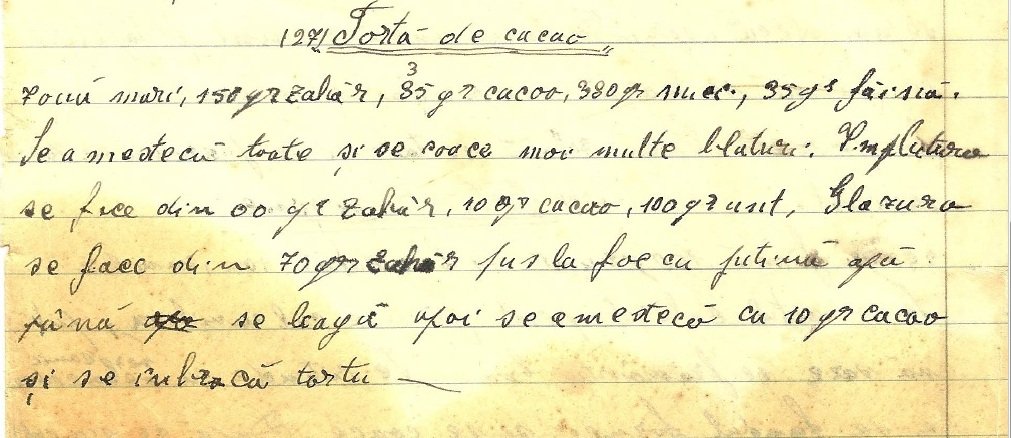 127) Tortă de cacao
7 ouă mari, 150 gr zahăr, 35 gr cacao, 380 gr nuci, 35 gr făină.
Se amestecă toate și se coace mai multe blaturi. Împlutura
se face din 00 gr zahăr, 10 gr cacao, 100 gr unt, Glazura
se face din 70 gr zahăr pus la foc cu puțină apă
până se leagă apoi se amestecă cu 10 gr cacao
și se înbracă tortu